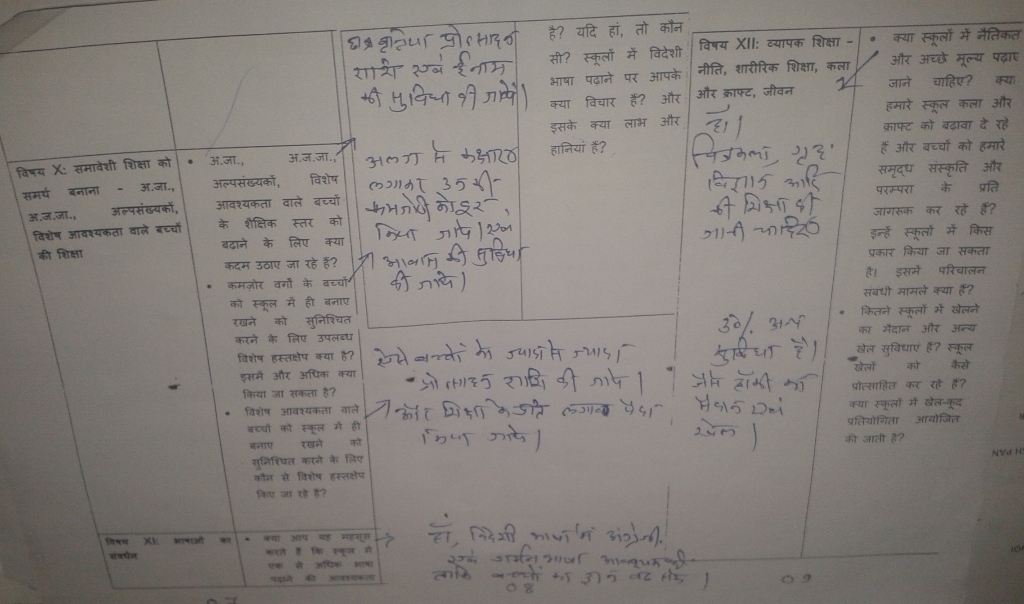 विषय X: समावेशी शिक्षा को
समर्थ बनाना - अ.जा.,
अ.ज.जा., अल्पसंख्यकों,
विशेष आवश्यकता वाले बच्चों
की शिक्षा
• अ.जा., अ.ज.जा.,
अल्पसंख्यकों, विशेष
आवश्यकता वाले बच्चों
के शैक्षिक स्तर को
बढ़ाने के लिए क्या
कदम उठाए जा रहे हैं?
• कमजोर वर्गों के बच्चों
को स्कूल में ही बनाए
रखने को सुनिश्चित
करने के लिए उपलब्ध
विशेष हस्तक्षेप क्या है?
इसमें और अधिक क्या
किया जा सकता है?
• विशेष आवश्यकता वाले
बच्चों को स्कूल में ही
बनाए रखने को
सुनिश्चित करने के लिए
कौन से विशेष हस्तक्षेप
किए जा रहे हैं?
विषय XI: भाषाओं का
संवर्धन
• क्या आप यह महसूस
करते हैं कि स्कूल में
एक से अधिक भाषा
पढ़ाने की आवश्यकता
प्रोत्साहन
राशि एवं ईनाम
की सुविधा दी जावें।
अलग से
लगाकर उनकी
कमजोरी को दूर
किया जावे। एवं
आवास की सुविधा
दी जावे।
ऐसे बच्चों को ज्यादा से ज्यादा
प्रोत्साहन राशि दी जावे।
और शिक्षा के प्रति लगाव पैदा
किया जावे।
हाँ, विदेशी भाषा में अंग्रेजी.
एवं जर्मन भाषा
ताकि बच्चों का ज्ञान बढ़ सके।
08
है? यदि हां, तो कौन
सी? स्कूलों में विदेशी
भाषा पढ़ाने पर आपके
क्या विचार हैं? और
इसके क्या लाभ और
हानियां हैं?
विषय XII: व्यापक शिक्षा -
नीति, शारीरिक शिक्षा, कला
और क्राफ्ट, जीवन
हाँ।
चित्रकला, गृह
विज्ञान आदि
की शिक्षा दी
जानी चाहिए
30% अन्य
सुविधा है।
जैसे हॉकी का
मैदान एवं
खेल।
09
• क्या स्कूलों में नैतिकता
और अच्छे मूल्य पढ़ाए
जाने चाहिए? क्या
हमारे स्कूल कला और
क्राफ्ट को बढावा दे रहे
हैं और बच्चों को हमारे
समृद्ध संस्कृति और
परम्परा के प्रति
जागरूक कर रहे हैं?
इन्हें स्कूलों में किस
प्रकार किया जा सकता
है। इसमें परिचालन
संबंधी मामले क्या हैं?
• कितने स्कूलों में खेलने
का मैदान और अन्य
खेल सुविधाएं हैं? स्कूल
खेलों को कैसे
प्रोत्साहित कर रहे हैं?
क्या स्कूलों में खेल-कूद
प्रतियोगिता आयोजित
की जाती है?